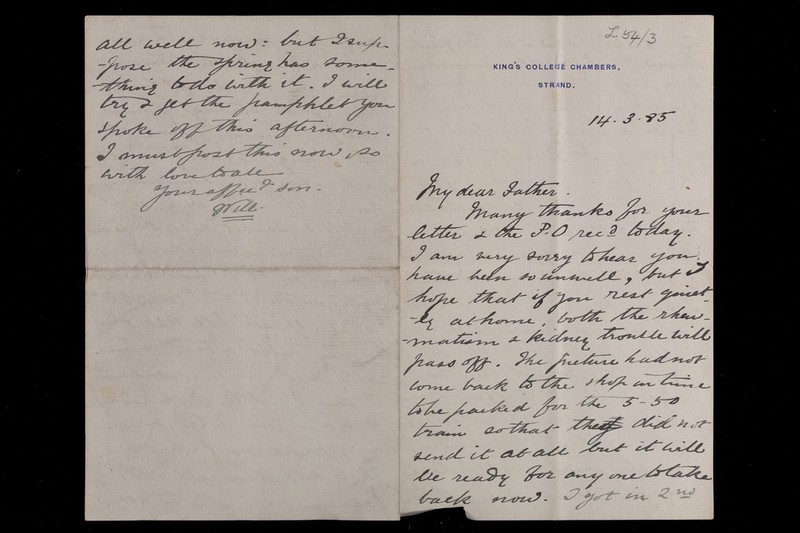 L 54/3
KING'S COLLEGE CHAMBERS,
STRAND.
14. 3. 85
My dear Father.
Many thanks for your
letter & the P.O rec'd today.
I am very sorry to hear you
have been so unwell, but I
hope that if you rest quiet-
-ly at home, both the rheu-
-matism & kidney trouble will
pass off. The picture had not
come back to the shop in time
to be packed for the 5-50
train so that they did not
send it at all but it will
be ready for any one to take
back now. I got in 2nd
all well now: but I sup-
-pose the spring has some-
-thing to do with it. I will
try & get the pamphlet you
spoke off this afternoon.
I must post this now, so
with love to all
Your affec'd son.
Will.